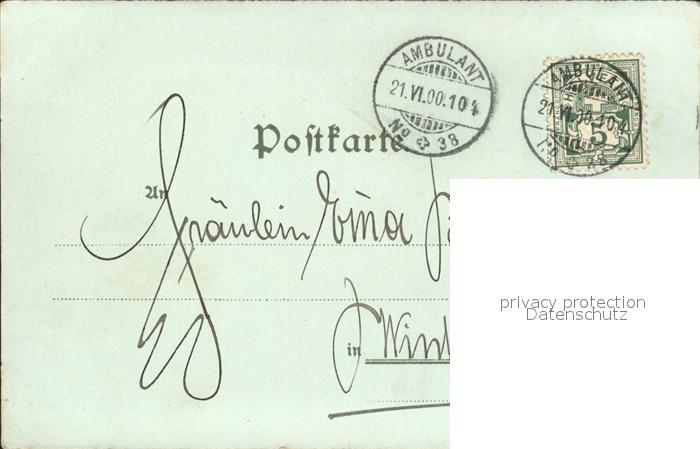 AMBULANT
21.VI.00.104
No 38
AMBULANT
5
Postkarte
An
Fräulein Lina
in Wint
privacy protection
Datenschutz